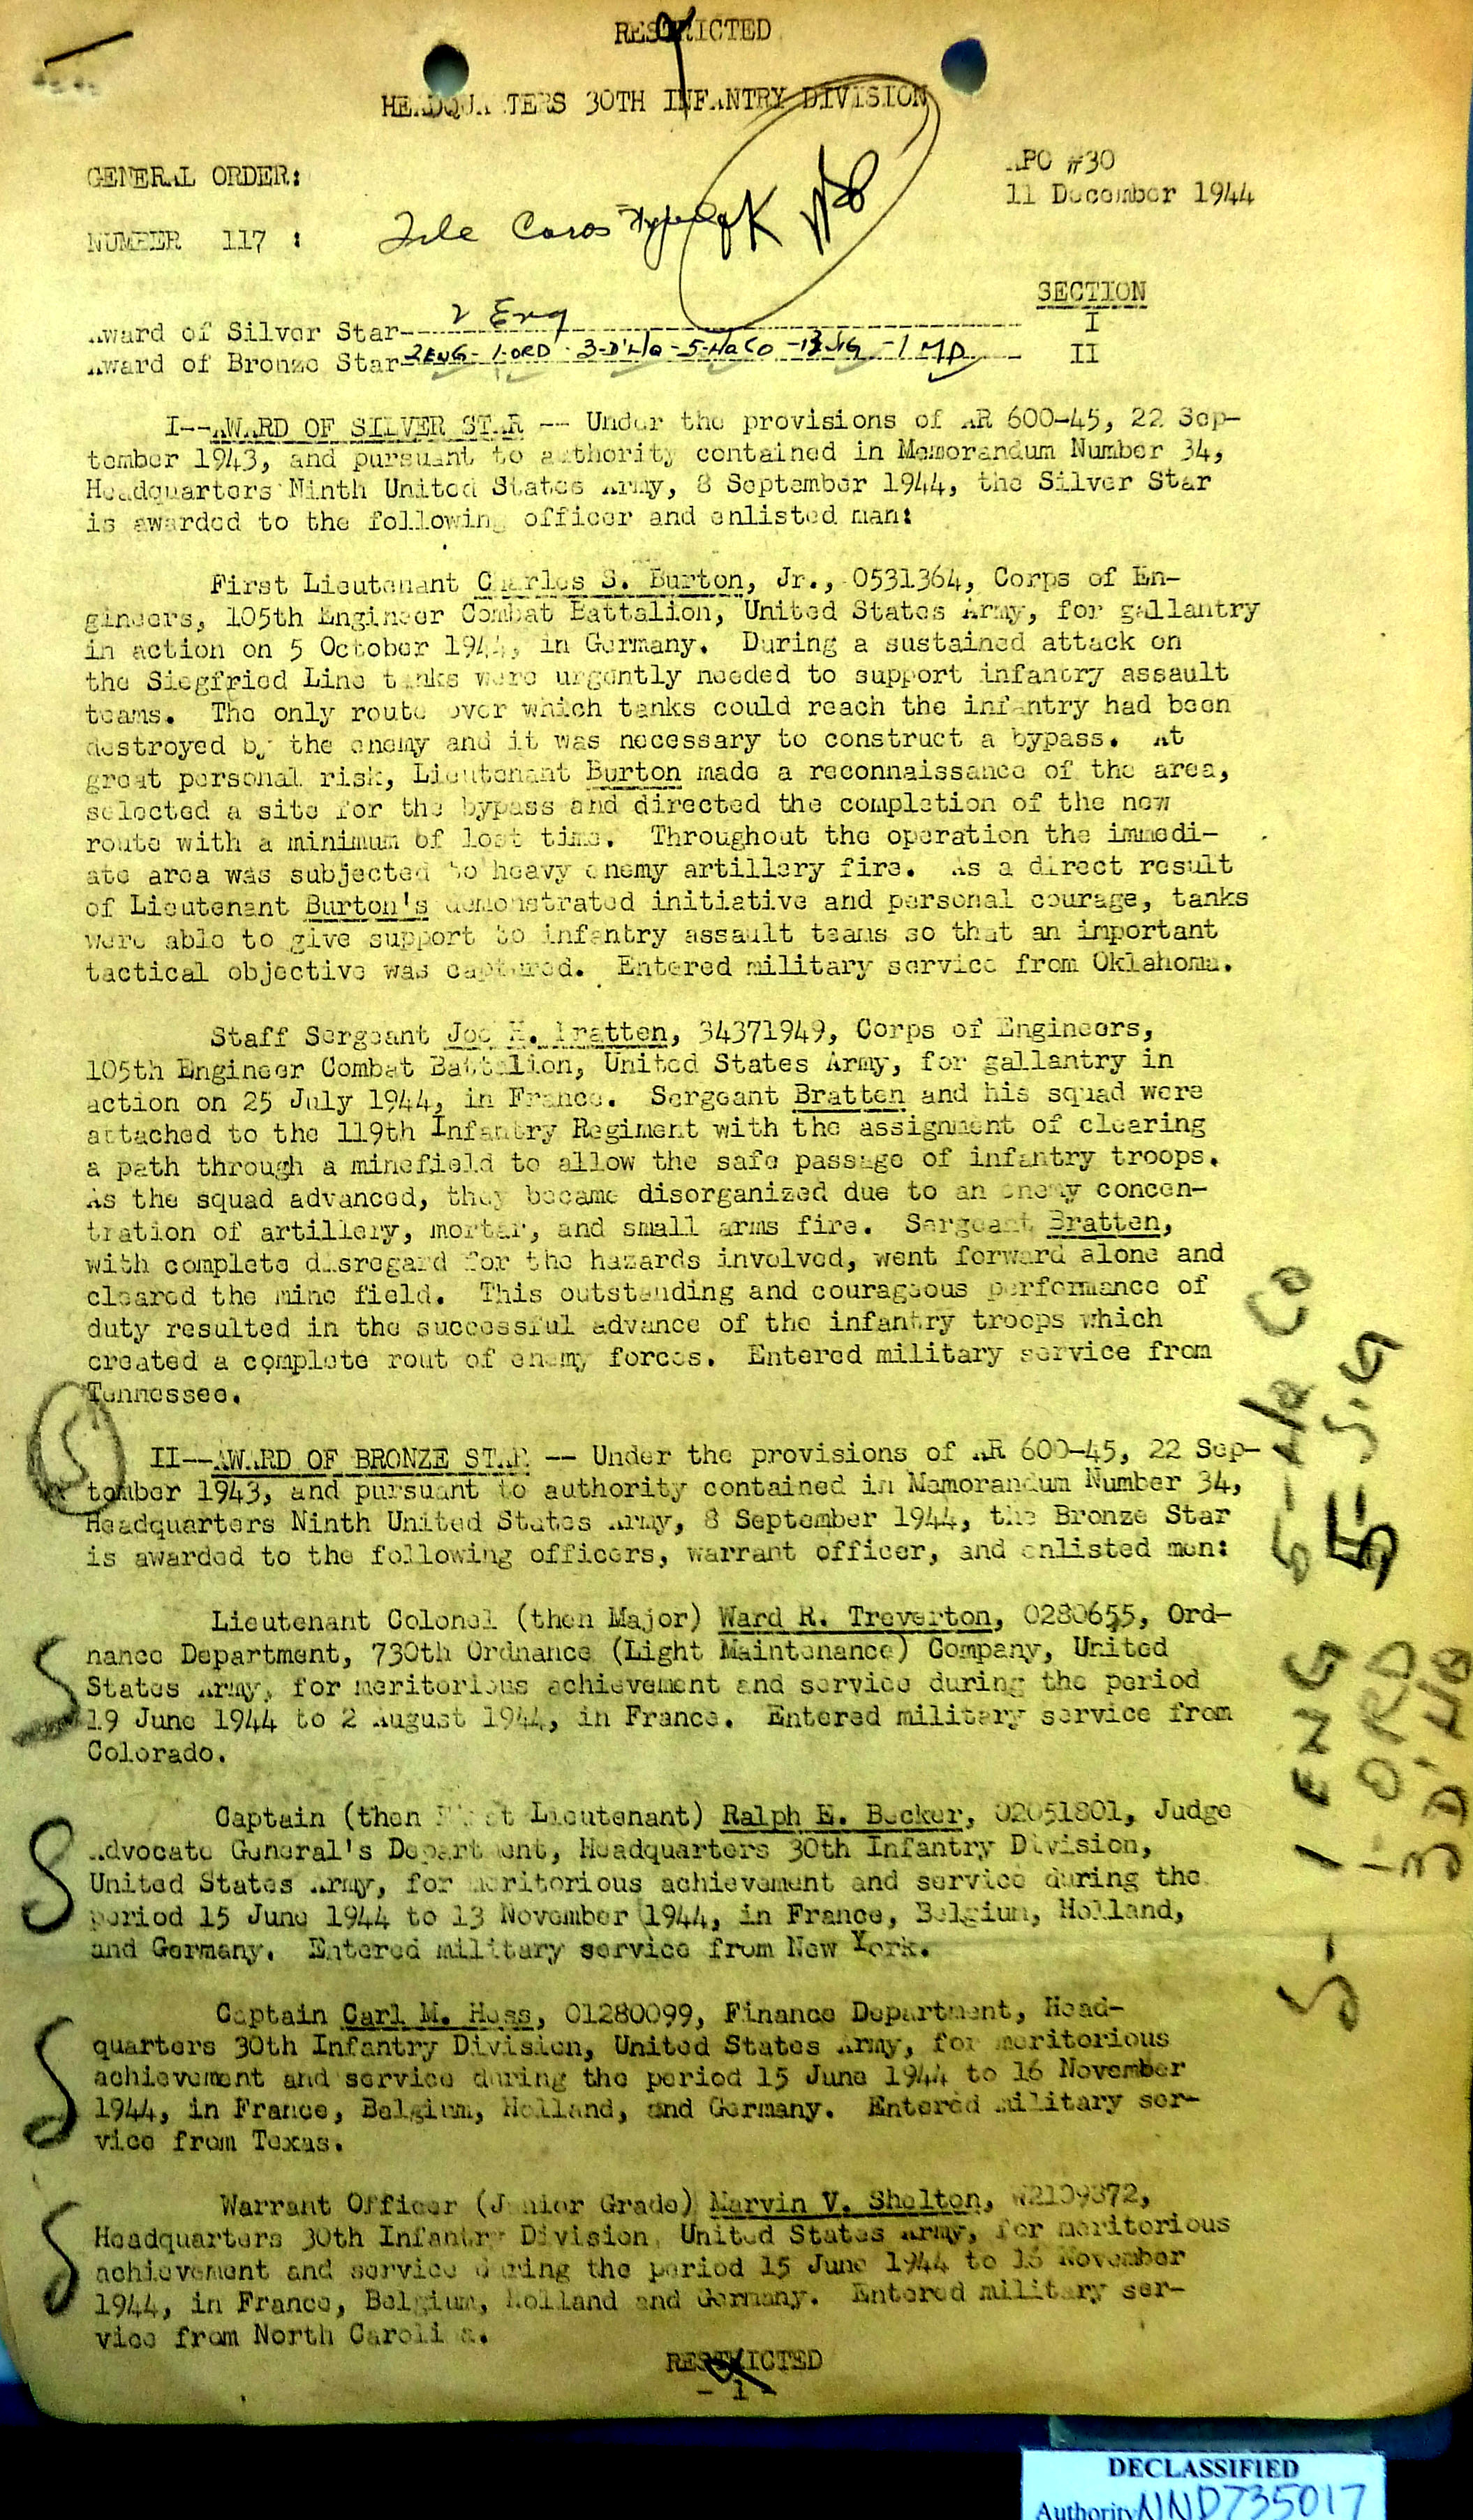 RESTRICTED
HEADQUARTERS 30TH INFANTRY DIVISION
GENERAL ORDER:
APO #30
11 December 1944
NUMBER 117 :
OK
SECTION
2 Eng
Award of Silver Star I
2 ENG - 1-ORD - 3-D'Hq - 5-Hq Co - SIG - 1 MD
Award of Bronze Star II
I--AWARD OF SILVER STAR -- Under the provisions of AR 600-45, 22 Sep-
tember 1943, and pursuant to authority contained in Memorandum Number 34,
Headquarters Ninth United States Army, 8 September 1944, the Silver Star
is awarded to the following officer and enlisted man:
First Lieutenant Charles S. Burton, Jr., 0531364, Corps of En-
gineers, 105th Engineer Combat Battalion, United States Army, for gallantry
in action on 5 October 1944, in Germany. During a sustained attack on
the Siegfried Line tanks were urgently needed to support infantry assault
teams. The only route over which tanks could reach the infantry had been
destroyed by the enemy and it was necessary to construct a bypass. At
great personal risk, Lieutenant Burton made a reconnaissance of the area,
selected a site for the bypass and directed the completion of the new
route with a minimum of lost time. Throughout the operation the immedi-
ate area was subjected to heavy enemy artillery fire. As a direct result
of Lieutenant Burton's demonstrated initiative and personal courage, tanks
were able to give support to infantry assault teams so that an important
tactical objective was captured. Entered military service from Oklahoma.
Staff Sergeant Joe H. Bratten, 34371949, Corps of Engineers,
105th Engineer Combat Battalion, United States Army, for gallantry in
action on 25 July 1944, in France. Sergeant Bratten and his squad were
attached to the 119th Infantry Regiment with the assignment of clearing
a path through a minefield to allow the safe passage of infantry troops.
As the squad advanced, they became disorganized due to an enemy concen-
tration of artillery, mortar, and small arms fire. Sergeant Bratten,
with complete disregard for the hazards involved, went forward alone and
cleared the mine field. This outstanding and courageous performance of
duty resulted in the successful advance of the infantry troops which
created a complete rout of enemy forces. Entered military service from
Tennessee.
S
II--AWARD OF BRONZE STAR -- Under the provisions of AR 600-45, 22 Sep-
tember 1943, and pursuant to authority contained in Memorandum Number 34,
Headquarters Ninth United States Army, 8 September 1944, the Bronze Star
is awarded to the following officers, warrant officer, and enlisted men:
S
Lieutenant Colonel (then Major) Ward R. Treverton, 0280655, Ord-
nance Department, 730th Ordnance (Light Maintenance) Company, United
States Army, for meritorious achievement and service during the period
19 June 1944 to 2 August 1944, in France. Entered military service from
Colorado.
S
Captain (then First Lieutenant) Ralph E. Becker, 02051801, Judge
Advocate General's Department, Headquarters 30th Infantry Division,
United States Army, for meritorious achievement and service during the
period 15 June 1944 to 13 November 1944, in France, Belgium, Holland,
and Germany. Entered military service from New York.
S
Captain Carl M. Hess, 01280099, Finance Department, Head-
quarters 30th Infantry Division, United States Army, for meritorious
achievement and service during the period 15 June 1944 to 16 November
1944, in France, Belgium, Holland, and Germany. Entered military ser-
vice from Texas.
S
Warrant Officer (Junior Grade) Marvin V. Shelton, W2109372,
Headquarters 30th Infantry Division, United States Army, for meritorious
achievement and service during the period 15 June 1944 to 16 November
1944, in France, Belgium, Holland and Germany. Entered military ser-
vice from North Carolina.
S- 1 ENG 5-Hq Co
1- ORD 5-SIG
3 D'HQ
RESTRICTED
- 1 -
DECLASSIFIED
Authority NND735017